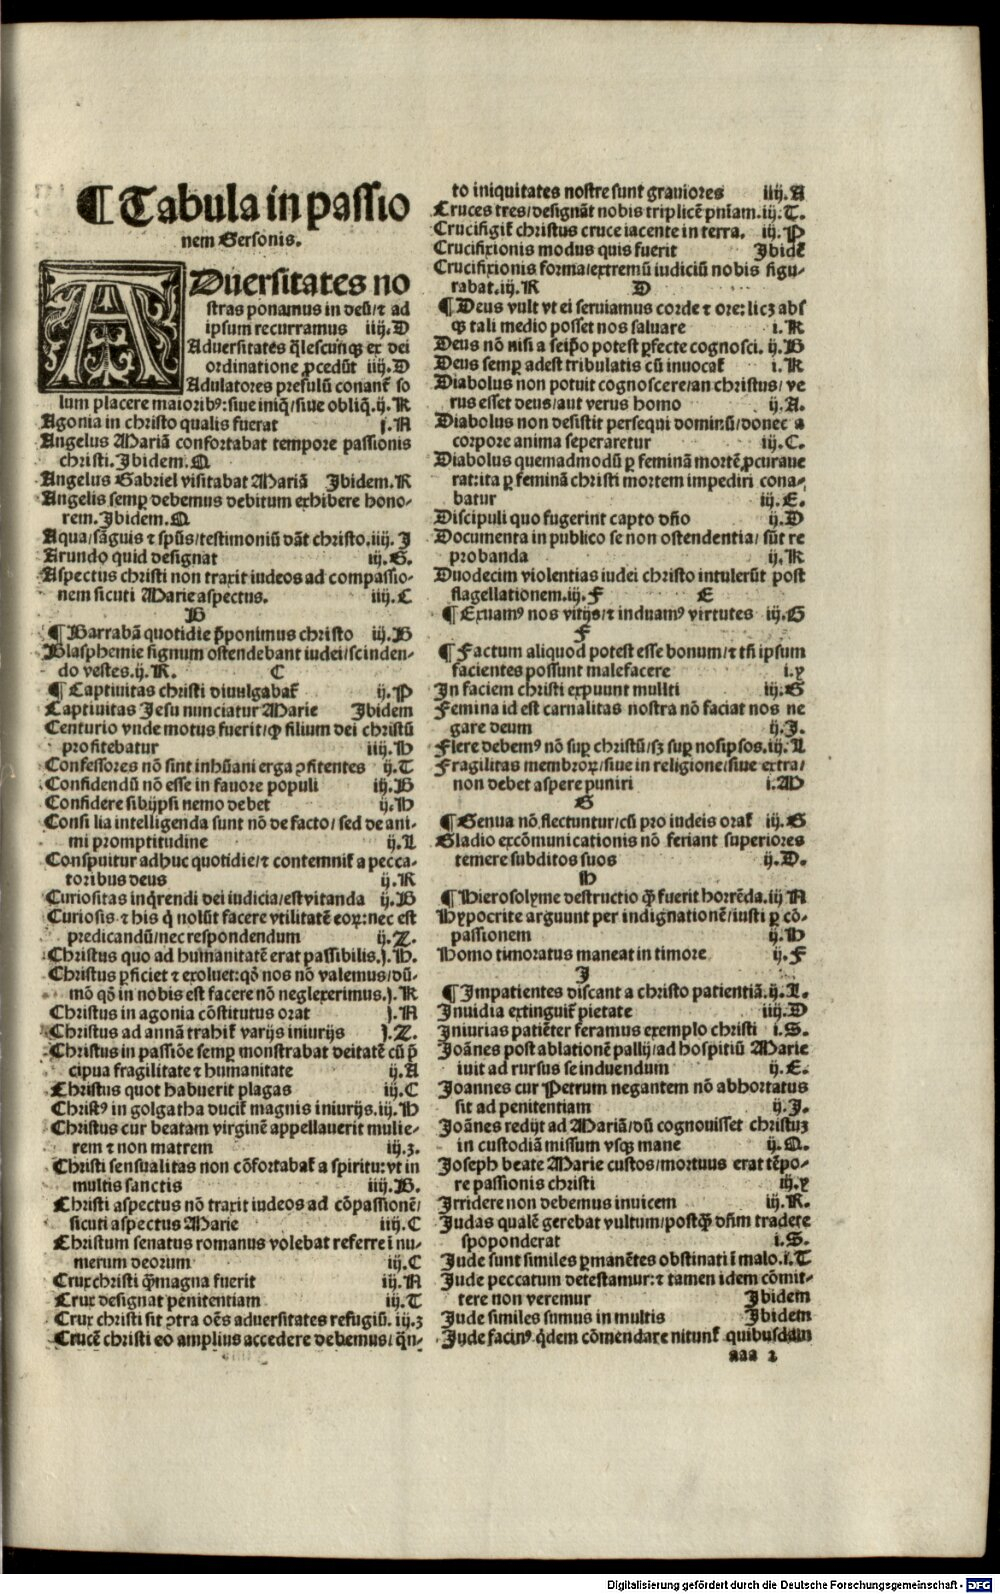 ¶ Tabula in passio
nem Gersonis.
ADuersitates no
stras ponamus in deũ/⁊ ad
ipsum recurramus iiij.D
Aduersitates q̃lescũnq₃ ex dei
ordinatione ꝓcedũt iiij.D
Adulatores presulũ conant᷑ so
lum placere maioribꝰ: siue iniq̃/siue obliq̃.ij.K
Agonia in christo qualis fuerat j.N
Angelus Mariã confortabat tempore passionis
christi. Ibidem.M
Angelus Gabriel visitabat Mariã Ibidem.K
Angelis semꝑ debemus debitum exhibere hono-
rem. Ibidem.M
Aqua/sãguis ⁊ spũs/testimoniũ dãt christo.iiij. J
Arundo quid designat iij.G.
Aspectus christi non traxit iudeos ad compassio-
nem sicuti Marie aspectus. iiij.C
B
¶ Barrabã quotidie p̃ponimus christo iij.B
Blasphemie signum ostendebant iudei/scinden-
do vestes.ij.K. C
¶ Captiuitas christi diuulgabat᷑ ij.P
Captiuitas Iesu nunciatur Marie Ibidem
Centurio vnde motus fuerit/ꝙ filium dei christũ
profitebatur iiij.H
Confessores nõ sint inhũani erga ꝯfitentes ij.T
Confidendũ nõ esse in fauore populi iij.B
Confidere sibijpsi nemo debet ij.H
Consi lia intelligenda sunt nõ de facto/ sed de ani-
mi promptitudine ij.L
Conspuitur adhuc quotidie/⁊ contemnit᷑ a pecca-
toribus deus ij.K
Curiositas inq̃rendi dei iudicia/est vitanda ij.B
Curiosis ⁊ his q̃ nolũt facere vtilitatẽ eoꝝ: nec est
predicandũ/nec respondendum ij.Z.
Christus quo ad humanitatẽ erat passibilis.j.H.
Christus ꝑficiet ⁊ exoluet: qõ nos nõ valemus/dũ-
mõ qõ in nobis est facere nõ neglexerimus.j.K
Christus in agonia cõstitutus orat j.N
Christus ad annã trahit᷑ varijs iniurijs j.Z.
Christus in passiõe semꝑ monstrabat deitatẽ cũ p̃
cipua fragilitate ⁊ humanitate ij.A
Christus quot habuerit plagas iij.C
Christꝰ in golgatha ducit᷑ magnis iniurijs.iij.H
Christus cur beatam virginẽ appellauerit mulie-
rem ⁊ non matrem iij.z.
Christi sensualitas non cõfortabat᷑ a spiritu: vt in
multis sanctis iiij.B.
Christi aspectus nõ traxit iudeos ad cõpassionẽ/
sicuti aspectus Marie iiij.C
Christum senatus romanus volebat referre ĩ nu-
merum deorum iij.C
Crux christi q̃magna fuerit iij.N
Crux designat penitentiam iij.T
Crux christi sit ꝯtra oẽs aduersitates refugiũ. iij.z
Crucẽ christi eo amplius accedere debemus/ q̃n-
to iniquitates nostre sunt grauiores iiij.A
Cruces tres/designãt nobis triplicẽ pniam.iij.T.
Crucifigit᷑ christus cruce iacente in terra. iij.P
Crucifixionis modus quis fuerit Ibidẽ
Crucifixionis forma/extremũ iudiciũ nobis figu-
rabat.iij.R D
¶ Deus vult vt ei seruiamus corde ⁊ ore: licꝫ abs
q₃ tali medio posset nos saluare i.K
Deus nõ nisi a seip̃o potest ꝑfecte cognosci. ij.B
Deus semꝑ adest tribulatis cũ inuocat᷑ i.K
Diabolus non potuit cognoscere/an christus/ ve
rus esset deus/aut verus homo ij.A.
Diabolus non desistit persequi dominũ/donec a
corpore anima seperaretur iij.C.
Diabolus quemadmodũ ꝑ feminã mortẽ ꝓcuraue
rat: ita ꝑ feminã christi mortem impediri cona-
batur iij.E.
Discipuli quo fugerint capto dño ij.D
Documenta in publico se non ostendentia/ sũt re
probanda ij.K
Duodecim violentias iudei christo intulerũt post
flagellationem.iij.F E
¶ Exuamꝰ nos vitijs/⁊ induamꝰ virtutes iij.G
F
¶ Factum aliquod potest esse bonum/⁊ tñ ipsum
facientes possunt malefacere i.y
In faciem christi expuunt mullti iij.G
Femina id est carnalitas nostra nõ faciat nos ne
gare deum ij.J.
Flere debemꝰ nõ suꝑ christũ/sꝫ suꝑ nosipsos.iij.L
Fragilitas membroꝝ/siue in religione/siue extra/
non debet aspere puniri i.M
G
¶ Genua nõ flectuntur/cũ pro iudeis orat᷑ iij.G
Gladio excõmunicationis nõ feriant superiores
temere subditos suos ij.D.
H
¶ Hierosolyme destructio q̃ fuerit horrẽda.iij N
Hypocrite arguunt per indignationẽ/iusti ꝑ cõ-
passionem ij.H
Homo timoratus maneat in timore ij.F
J
¶ Impatientes discant a christo patientiã.ij.L.
Inuidia extinguit᷑ pietate iiij.D
Iniurias patiẽter feramus exemplo christi i.S.
Ioãnes post ablationẽ pallij/ad hospitiũ Marie
iuit ad rursus se induendum ij.E.
Ioannes cur Petrum negantem nõ abhortatus
sit ad penitentiam ij.J.
Ioãnes redijt ad Mariã/dũ cognouisset christuꝫ
in custodiã missum vsq₃ mane ij.M.
Ioseph beate Marie custos/mortuus erat tẽpo-
re passionis christi iij.y
Irridere non debemus inuicem iij.K.
Iudas qualẽ gerebat vultum/postq̃ dñm tradere
spoponderat i.S.
Iude sunt similes ꝑmanẽtes obstinati ĩ malo.i.T
Iude peccatum detestamur: ⁊ tamen idem cõmit-
tere non veremur Ibidem
Iude similes sumus in multis Ibidem
Iude facinꝰ q̃dem cõmendare nitunt᷑ quibusdam
aaa 1
Digitalisierung gefördert durch die Deutsche Forschungsgemeinschaft - DFG